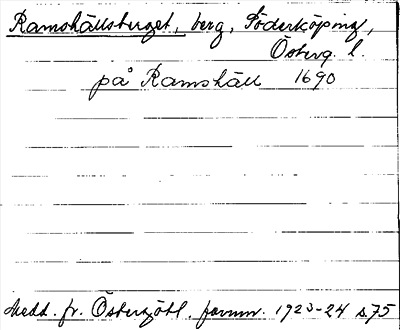 Ramshällsberget, berg, Söderköping,
Österg. l.
på Ramshäll 1690
Medd. fr. Östergötl. fornm. 1923-24 s. 75